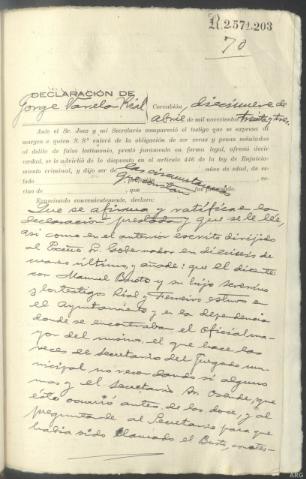 R.2.571.203
70
DECLARACIÓN DE
Jorge Varela Rial
Corcubión, diecinueve de
Abril de mil novecientos treinta y tres.
Ante el Sr. Juez y mi Secretario compareció el testigo que se expresa al
margen a quien S. Sª enteró de la obligación de ser veraz y penas señaladas
al delito de falso testimonio, prestó juramento en forma legal, ofreció decir
verdad, se le advirtió de lo dispuesto en el artículo 446 de la ley de Enjuicia-
miento criminal, y dijo ser de años de edad, de es-
tado
Examinado convenientemente, declara:
Que se afirma y ratifica en la
declaración prestada y que se le lée,
así como en el anterior escrito dirijido
al Excmo Sr. Gobernador en dieciseis de
marzo último, y añade: que el dicente
con Manuel Busto y su hijo
y los testigos Rial y estuvo en
el Ayuntamiento y en la dependencia
donde se encontraban el Oficial ma-
yor del mismo, el que hace las
veces de Secretario del Juzgado mu-
nicipal no recordando si alguno
mas y el Secretario Sr. que
ésto ocurrió antes de las doce, y al
preguntarle al Secretario para que
había sido llamado el Busto, contes-